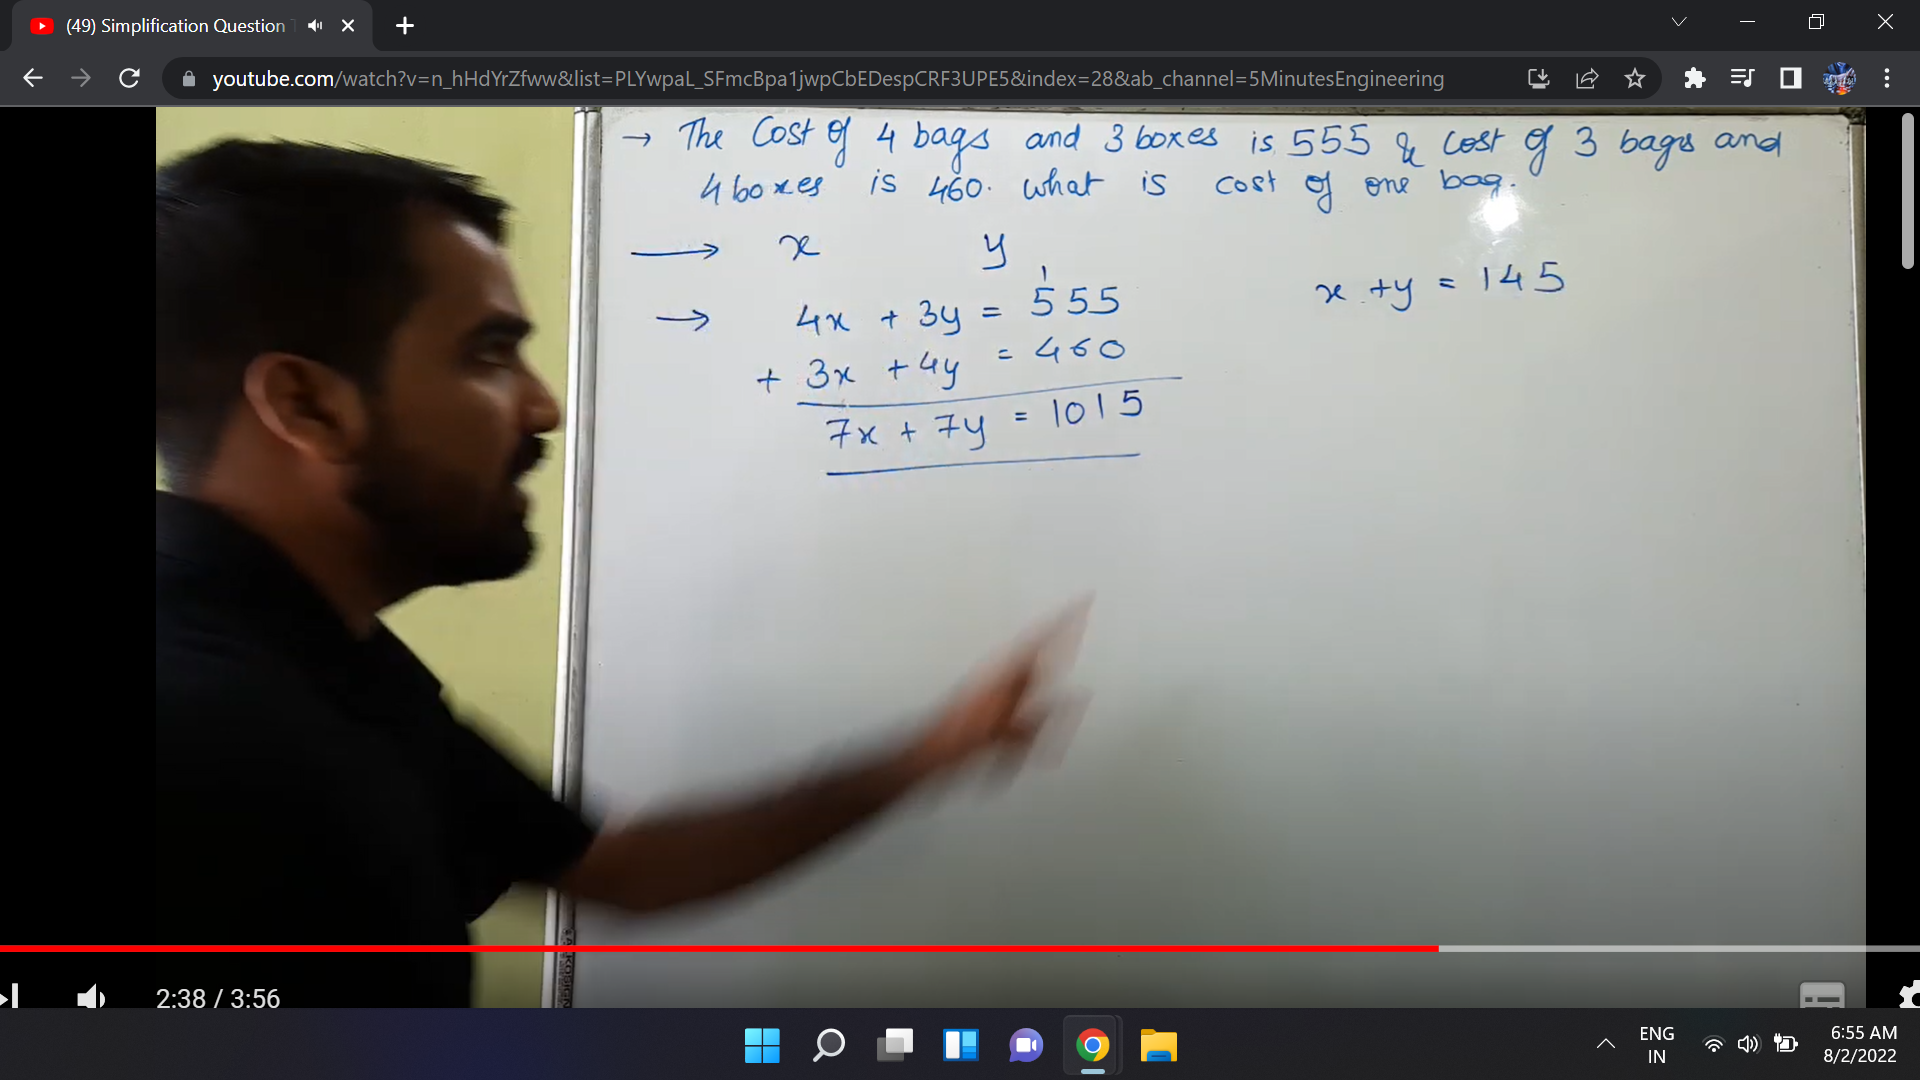 (49) Simplification Question
youtube.com/watch?v=n_hHdYrZfww&list=PLYwpaL_SFmcBpa1jwpCbEDespCRF3UPE5&index=28&ab_channel=5MinutesEngineering
→ The Cost of 4 bags and 3 boxes is 555 & cost of 3 bags and
4 boxes is 460. what is cost of one bag.
→ x y
→ 4x + 3y = 555
1
+ 3x + 4y = 460
7x + 7y = 1015
x + y = 145
2:38 / 3:56
ENG
IN
6:55 AM
8/2/2022